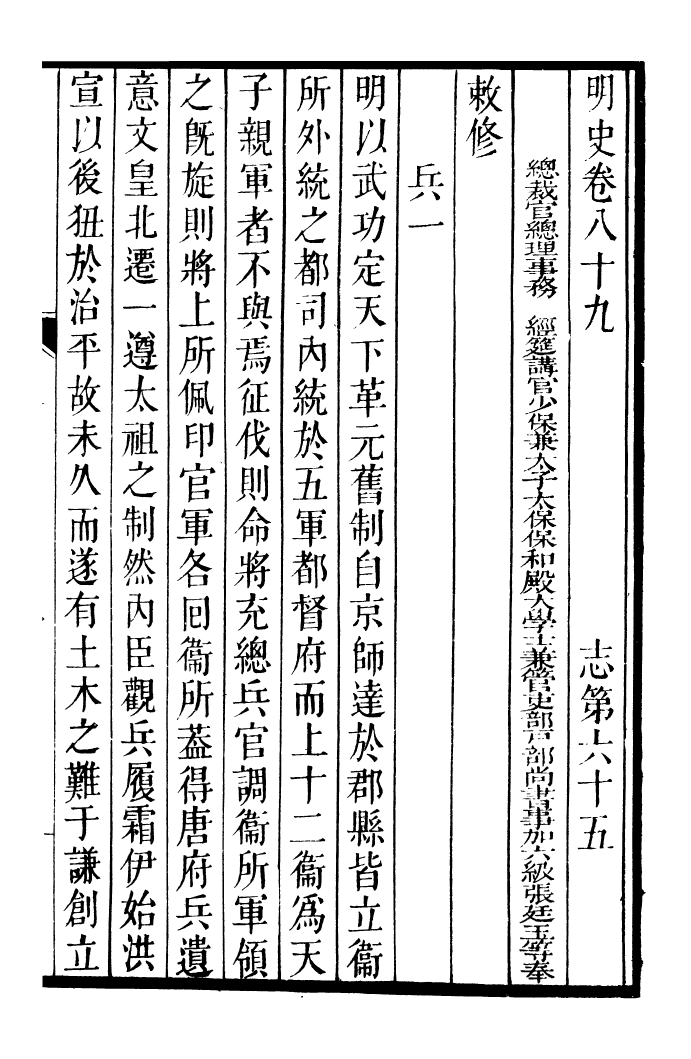 明史卷八十九　志第六十五
總裁官總理事務　經筵講官少保兼太子太保保和殿大學士兼管吏部戸部尚書事加六級張廷玉等奉
敕修
兵一
明以武功定天下革元舊制自京師達於郡縣皆立衞
所外統之都司內統於五軍都督府而上十二衞爲天
子親軍者不與焉征伐則命將充總兵官調衞所軍領
之旣旋則將上所佩印官軍各回衞所葢得唐府兵遺
意文皇北遷一遵太祖之制然內臣觀兵履霜伊始洪
宣以後狃於治平故未久而遂有土木之難于謙創立